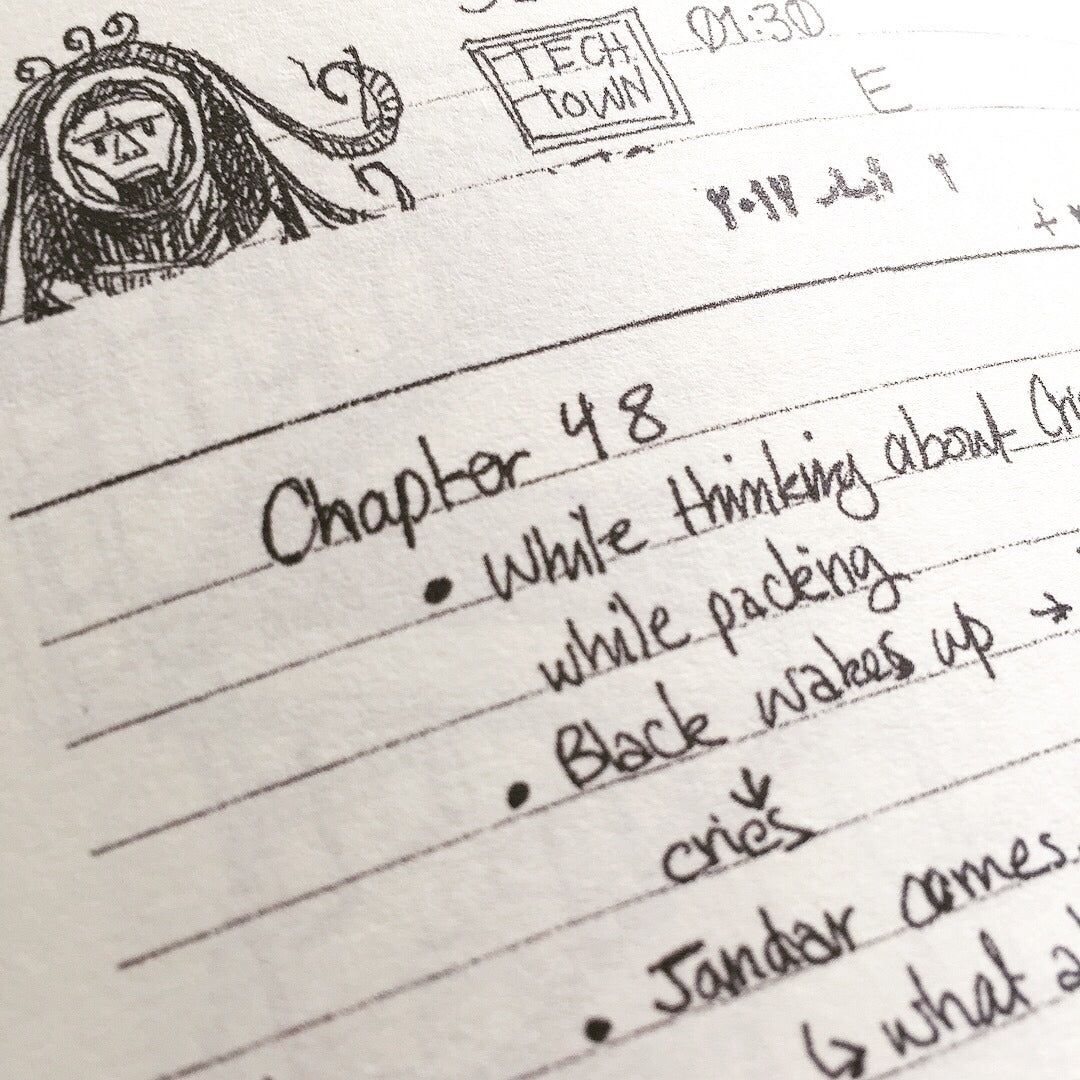 TECH
TOWN
01:30
E
٢ أيار ٢٠١٧
+
Chapter 48
• While thinking about
while packing
• Black wakes up →
↓
cries
• Jandar comes.
↳ what